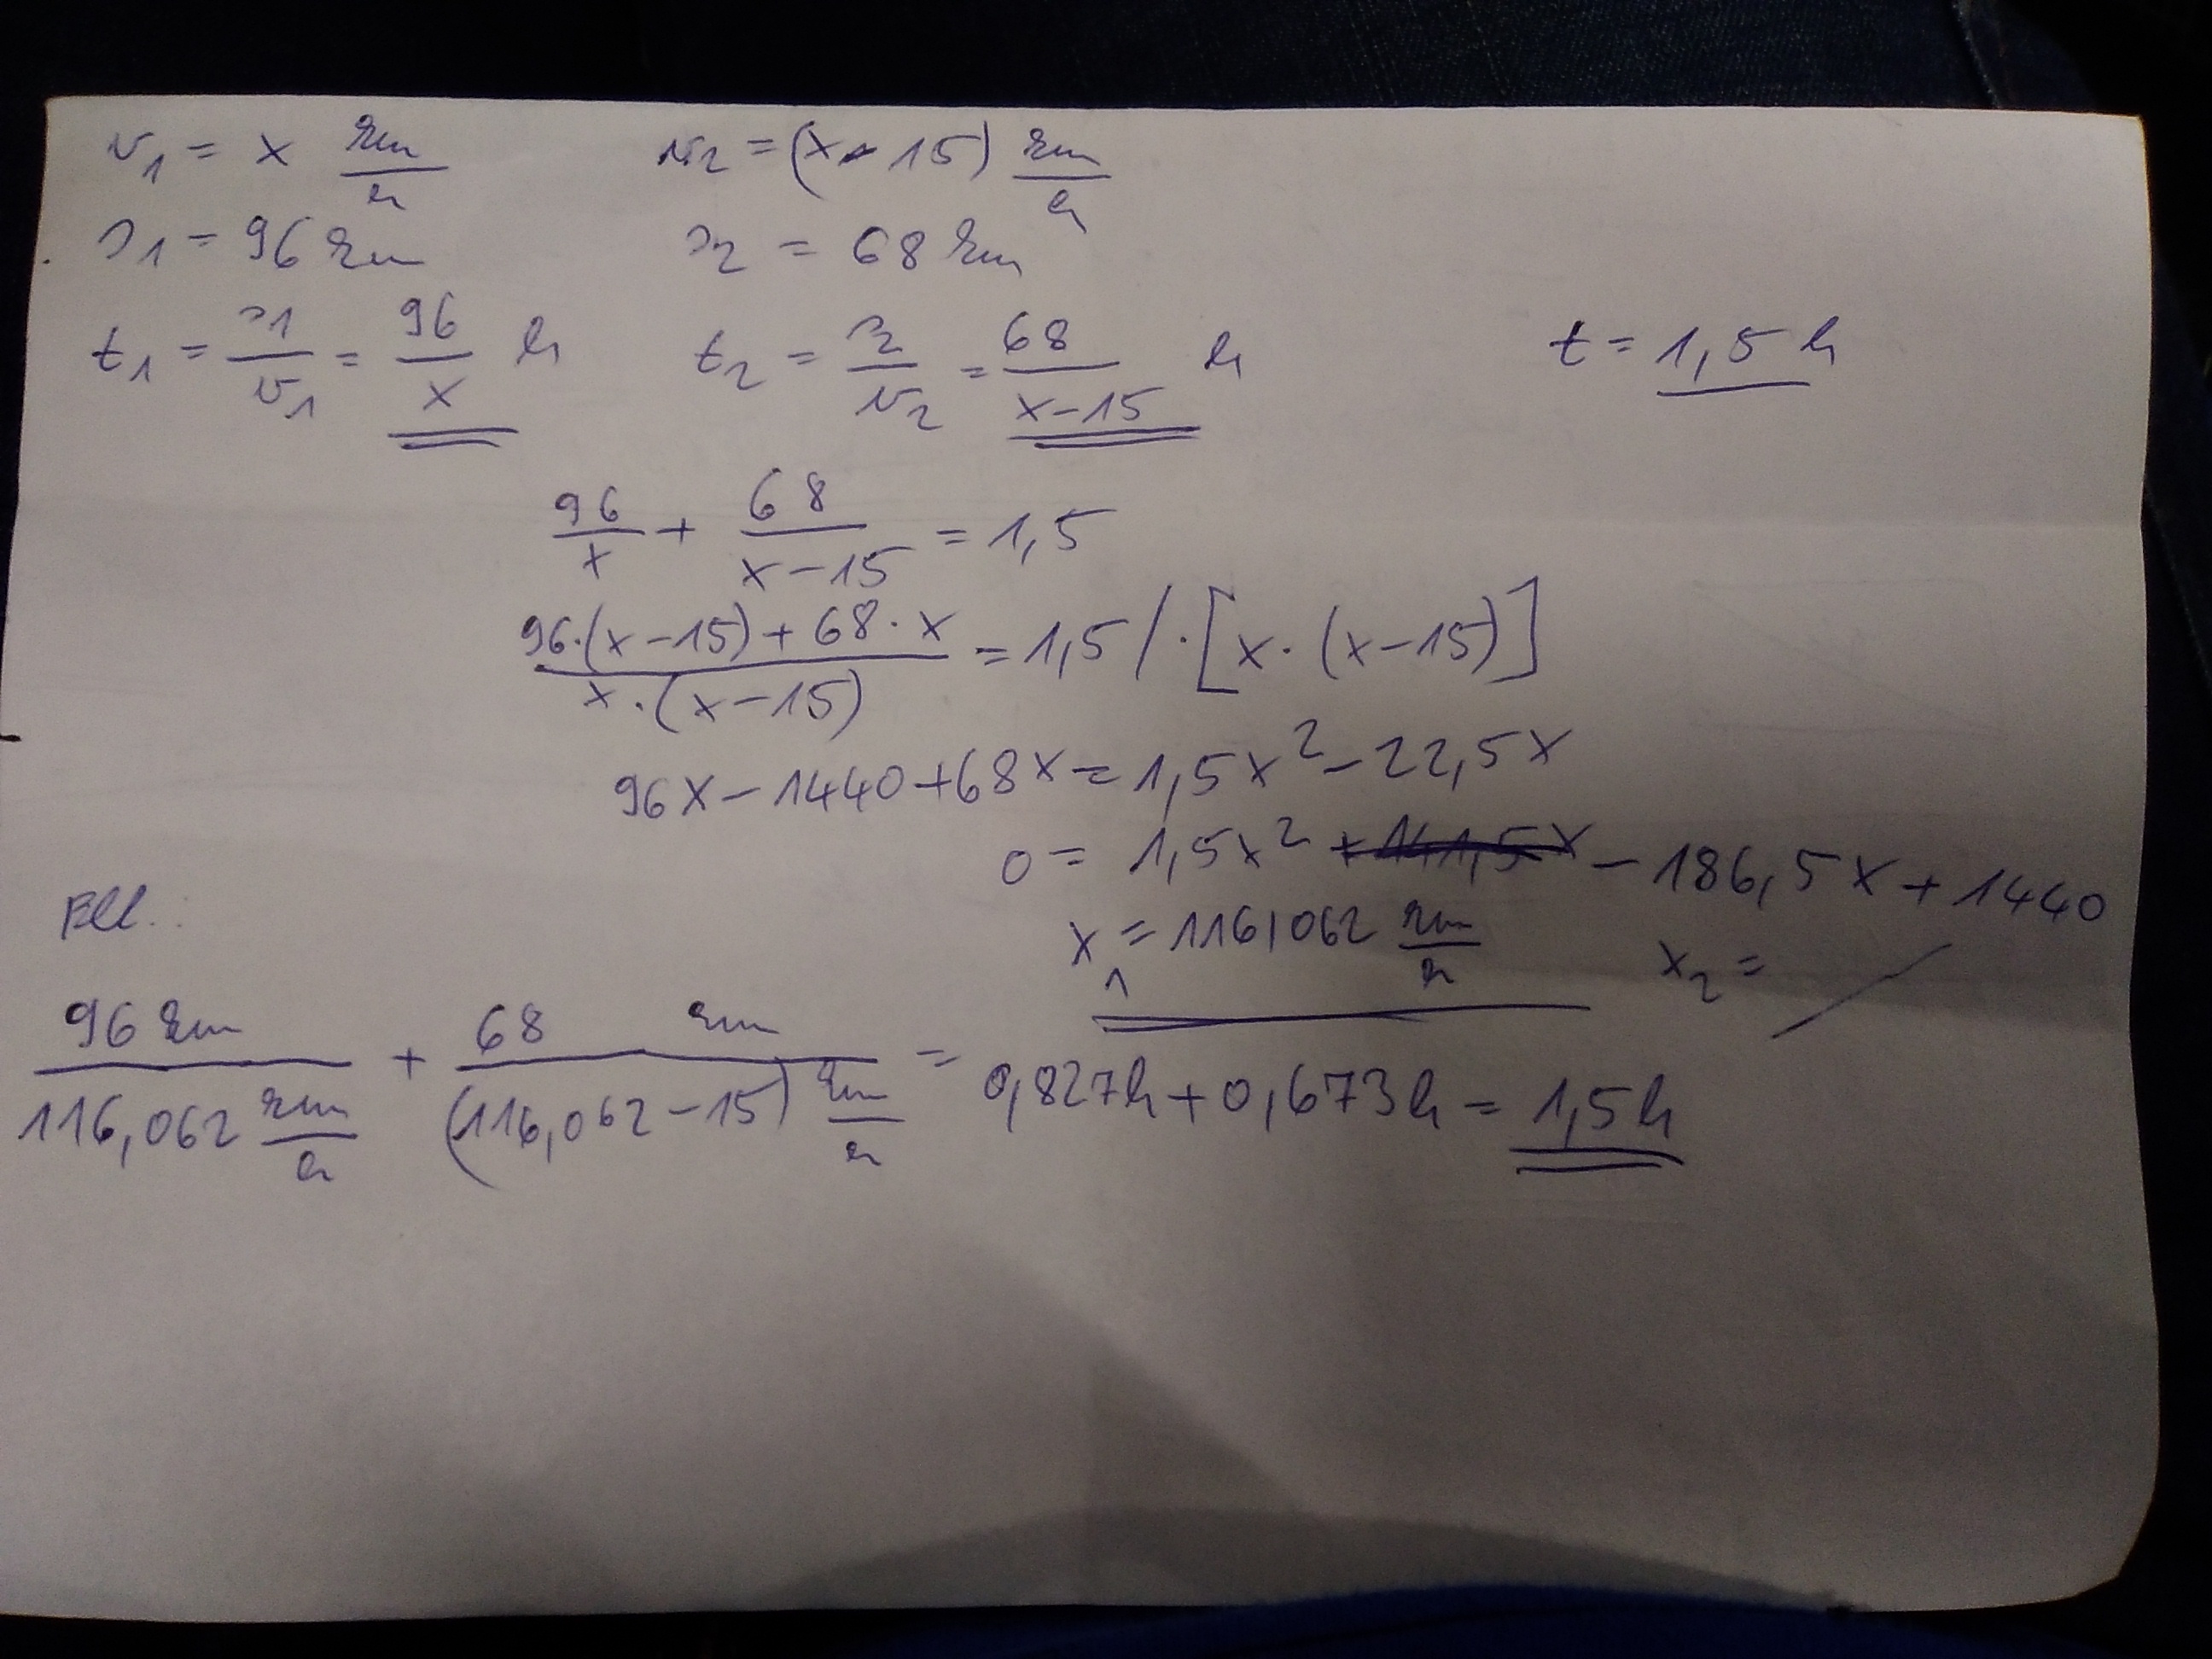 v₁ = x km/h v₂ = (x - 15) km/h
s₁ = 96 km s₂ = 68 km
t₁ = s₁/v₁ = 96/x h t₂ = s₂/v₂ = 68/(x-15) h t = 1,5 h
96/x + 68/(x-15) = 1,5
(96·(x-15)+68·x)/(x·(x-15)) = 1,5 /·[x·(x-15)]
96x - 1440 + 68x = 1,5x² - 22,5x
0 = 1,5x² +141,5x - 186,5x + 1440
x₁ = 116,062 km/h x₂ = /
Ell.:
96 km/(116,062 km/h) + 68 km/((116,062-15) km/h) = 0,827h + 0,673h = 1,5h